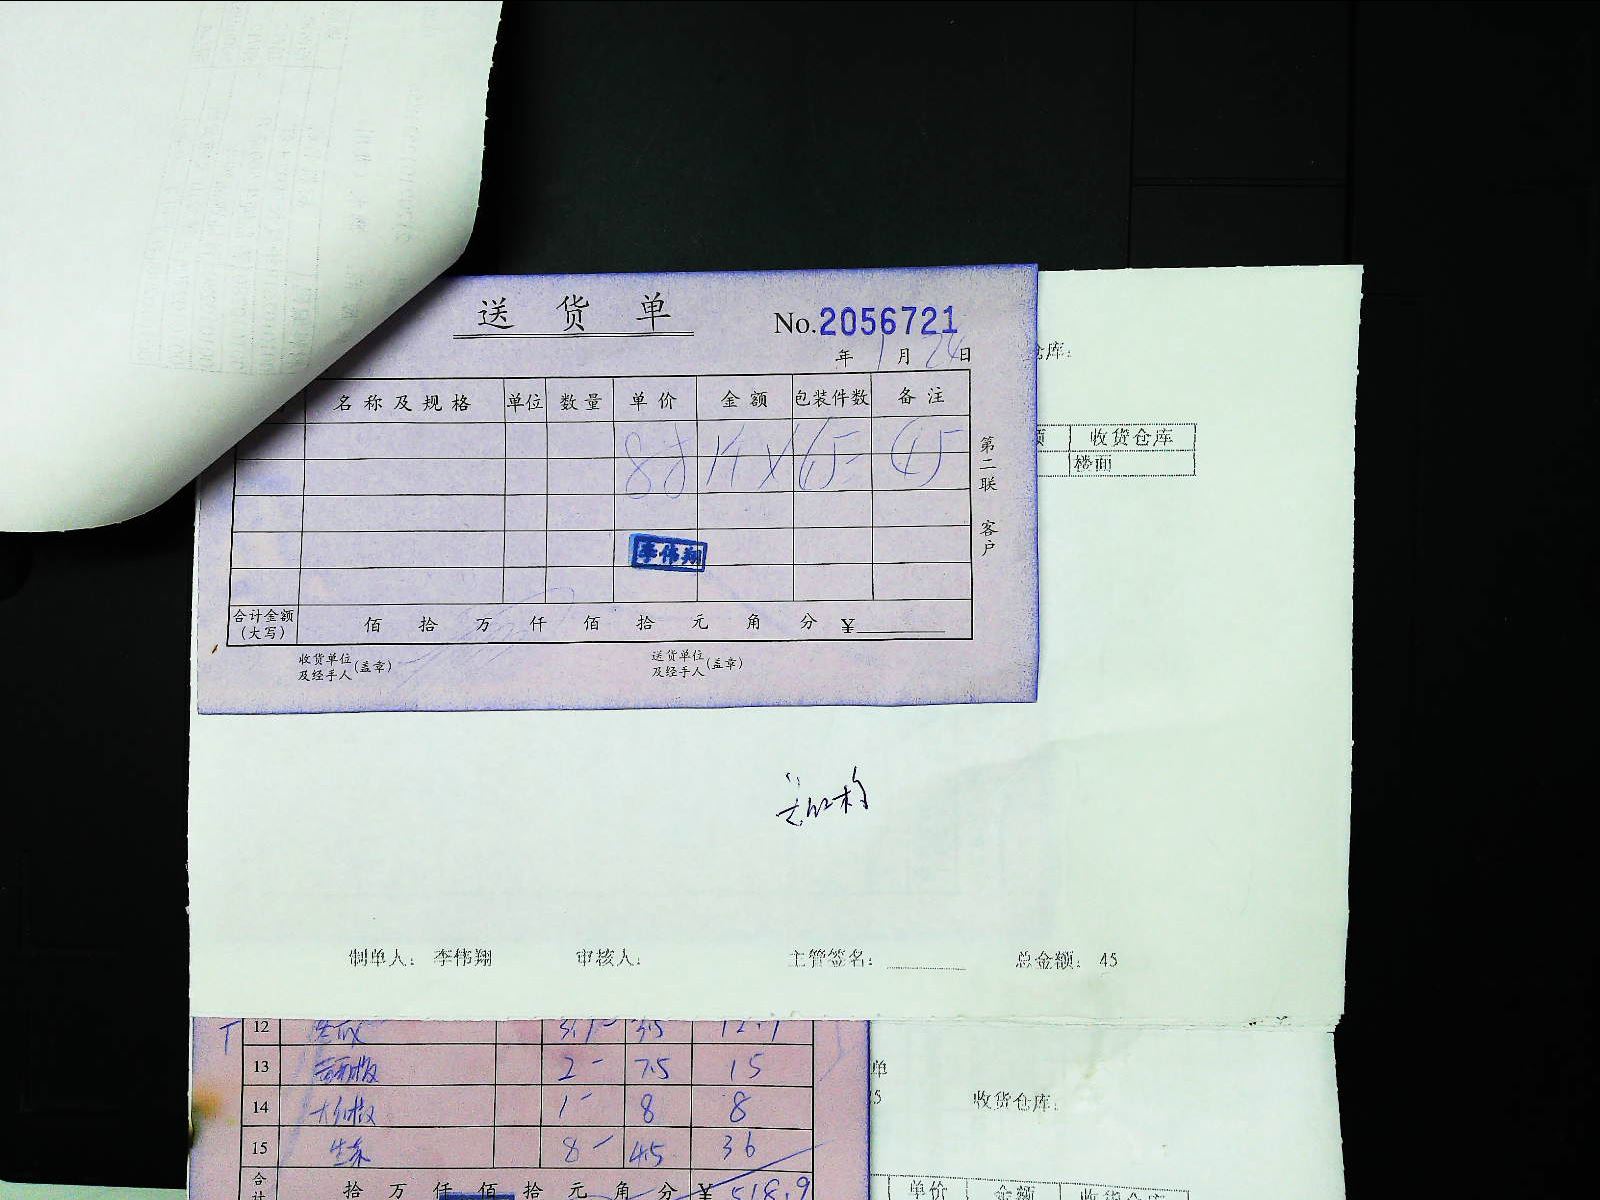 送货单
No.2056721
年1月24日
仓库:
名称及规格 单位 数量 单价 金额 包装件数 备注
收货仓库
楼面
45
第二联 客户
李伟翔
合计金额(大写) 佰 拾 万 仟 佰 拾 元 角 分 ¥
收货单位及经手人(盖章) 送货单位及经手人(盖章)
制单人: 李伟翔 审核人: 主管签名: 总金额: 45
12 3.1 3.5
13 2 7.5 15
单
14 1 8 8
5 收货仓库:
15 8 4.5 36
合计 拾 万 仟 佰 拾 元 角 分 ¥ 518.9
单价 金额 收货仓库